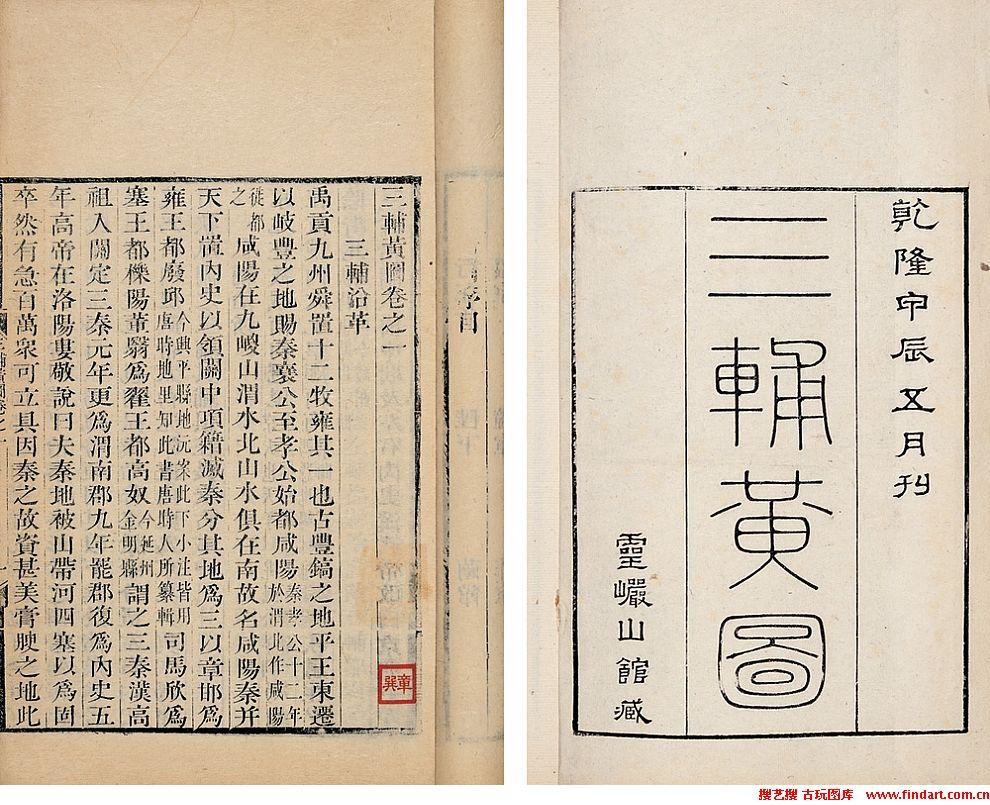 乾隆甲辰五月刊
三輔黃圖
靈巖山館藏
三輔黃圖卷之一
三輔沿革
禹貢九州舜置十二牧雍其一也古豐鎬之地平王東遷
以岐豐之地賜秦襄公至孝公始都咸陽秦孝公十二年於渭北作咸陽
徙都之咸陽在九嵕山渭水北山水俱在南故名咸陽秦并
天下置內史以領關中項籍滅秦分其地爲三以章邯爲
雍王都廢邱今興平縣地沅案此下小注皆用唐時地里知此書唐時人所纂輯司馬欣爲
塞王都櫟陽董翳爲翟王都高奴今延州金明縣謂之三秦漢高
祖入關定三秦元年更爲渭南郡九年罷郡復爲內史五
年高帝在洛陽婁敬說曰夫秦地被山帶河四塞以爲固
卒然有急百萬衆可立具因秦之故資甚美膏腴之地此
三輔黃圖卷之一
搜艺搜 古玩图库 www.findart.com.cn